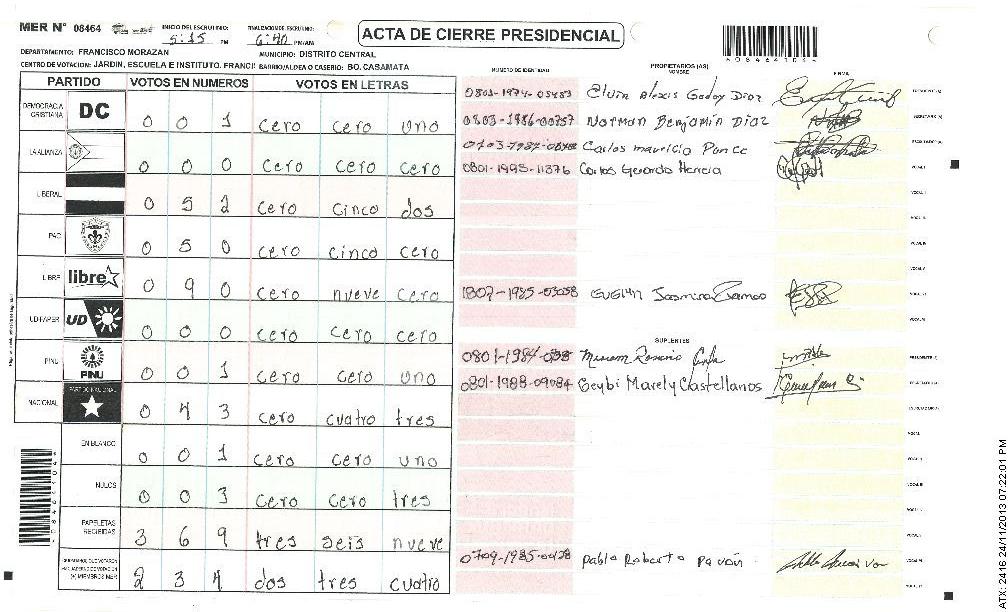 MER N° 08464
INICIO DEL ESCRUTINIO: 5:15 PM
FINALIZACION DE ESCRUTINIO: 6:40 PM/AM
ACTA DE CIERRE PRESIDENCIAL
DEPARTAMENTO: FRANCISCO MORAZAN
MUNICIPIO: DISTRITO CENTRAL
CENTRO DE VOTACION: JARDIN, ESCUELA E INSTITUTO. FRANCI BARRIO/ALDEA O CASERIO: BO. CASAMATA
PARTIDO VOTOS EN NUMEROS VOTOS EN LETRAS
DEMOCRACIA CRISTIANA DC 0 0 1 cero cero uno
LA ALIANZA 0 0 0 cero cero cero
LIBERAL 0 5 2 cero cinco dos
PAC 0 5 0 cero cinco cero
LIBRE libre 0 9 0 cero nueve cero
UD FAPER UD 0 0 0 cero cero cero
PINU PINU 0 0 1 cero cero uno
NACIONAL PARTIDO NACIONAL 0 4 3 cero cuatro tres
EN BLANCO 0 0 1 cero cero uno
NULOS 0 0 3 cero cero tres
PAPELETAS RECIBIDAS 3 6 9 tres seis nueve
2 3 4 dos tres cuatro
NUMERO DE IDENTIDAD PROPIETARIOS (AS) NOMBRE FIRMA
Elvin Alexis Godoy Diaz
0803-1986-00757 Norman Benjamin Diaz
Carlos mauricio Ponce
0801-1995-11376 Carlos Gerardo Herrera
1807-1985-03058
SUPLENTES
0801-1988-09084 Geybi Marely Castellanos
Pablo Roberto Pavón
ATX: 2416 24/11/2013 07:22:01 PM